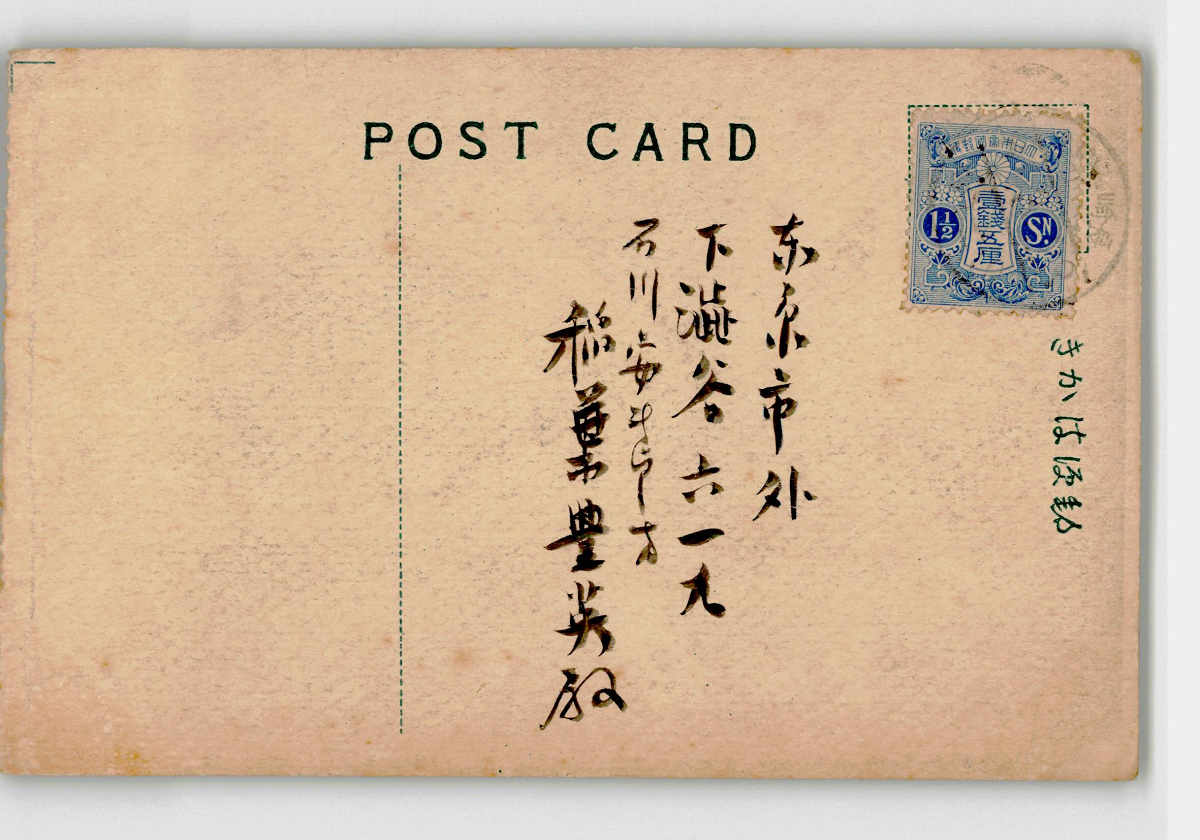 POST CARD
大日本帝国郵便
壹錢五厘
1½ SN.
きかは便郵
東京市外
下澁谷六一九
石川安次郎方
稲葉豊英殿